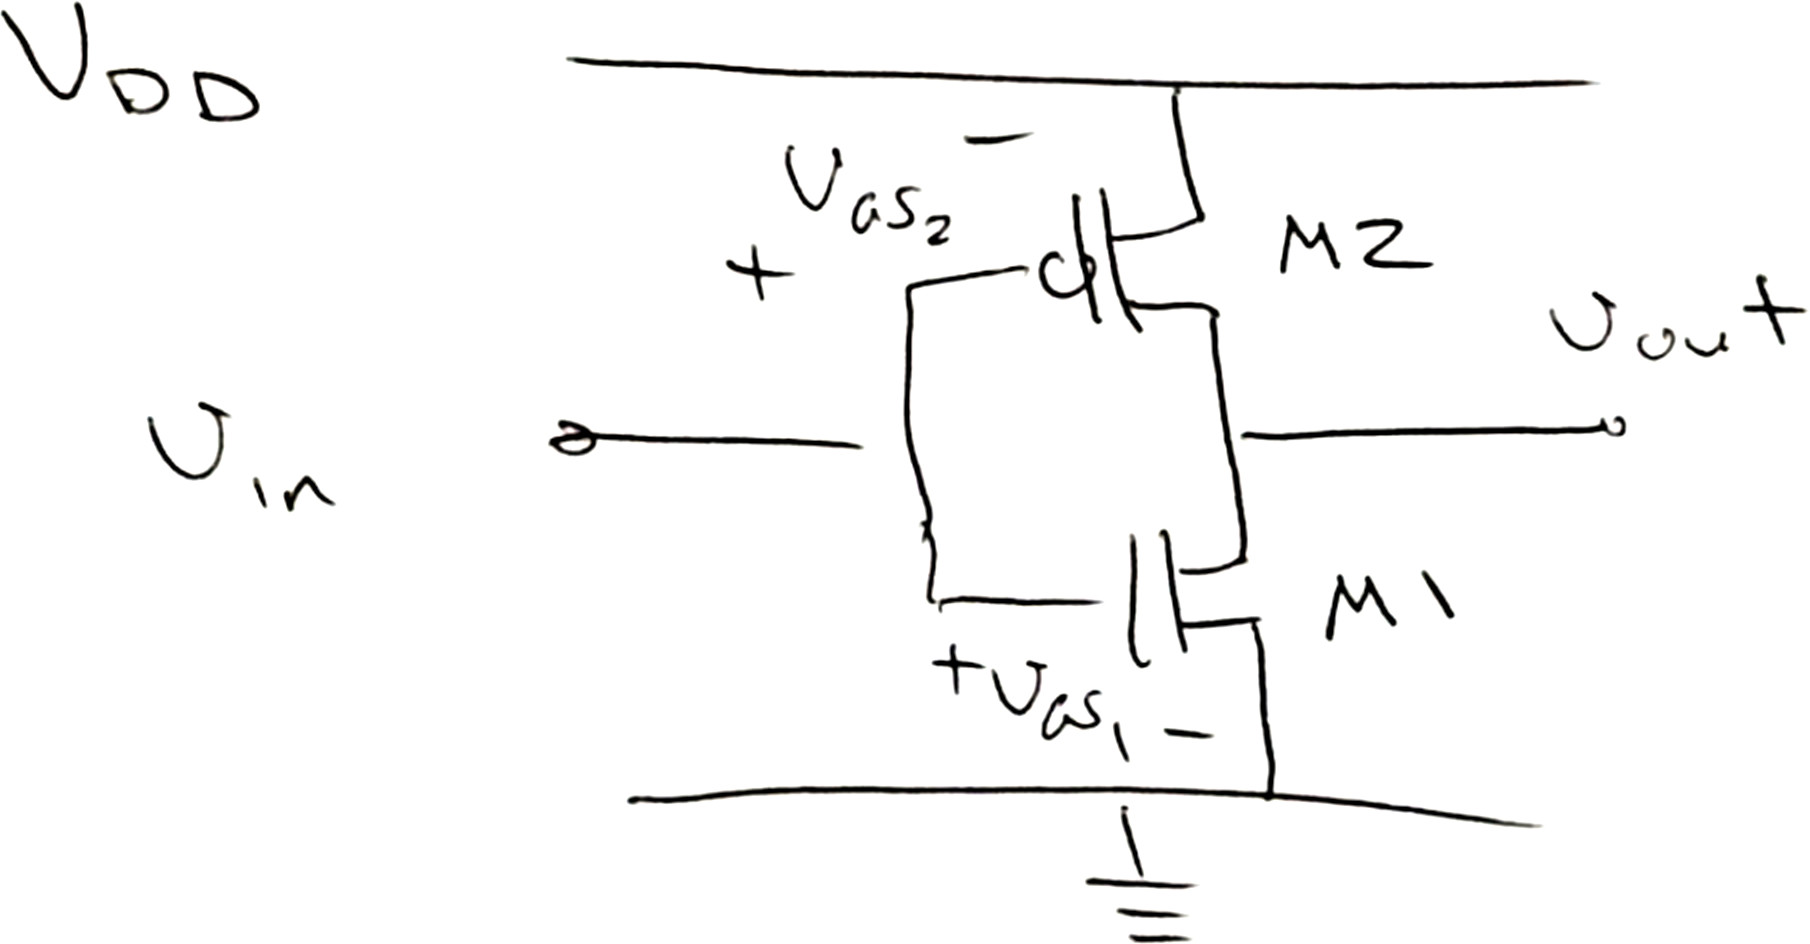 V_DD
−
V_GS2
+
M2
V_out
V_in
M1
+ V_GS1 −